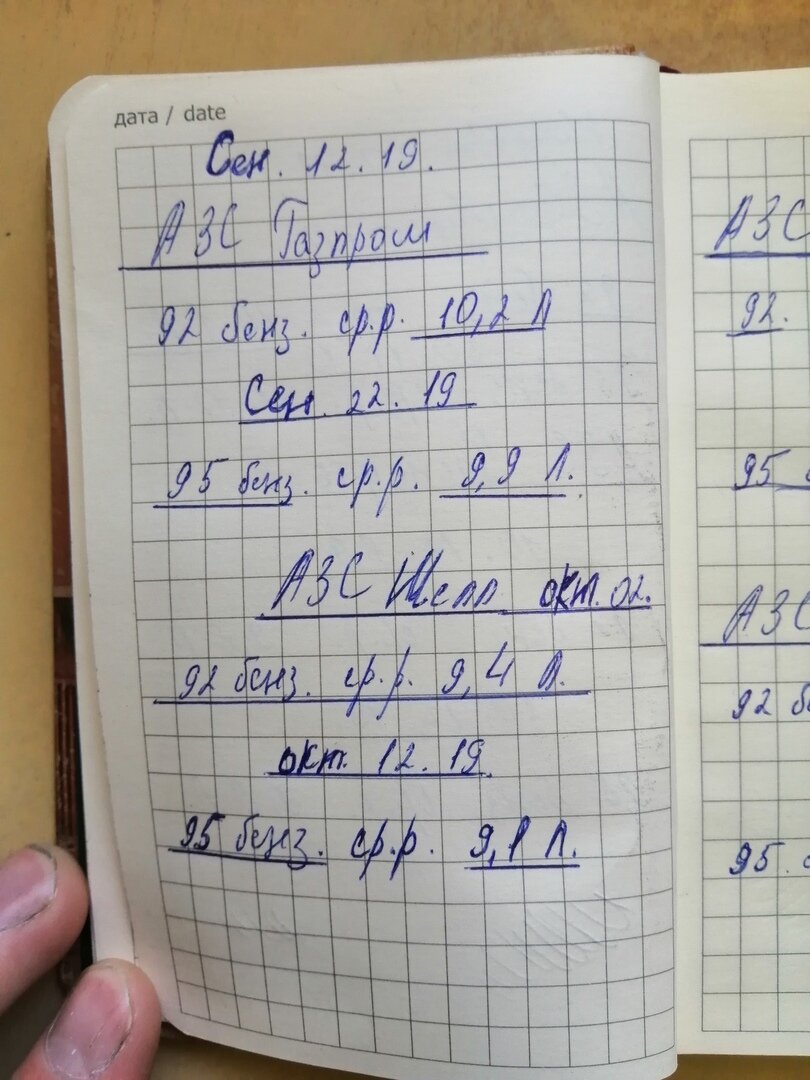 дата / date
Сен. 12.19.
АЗС Газпром
92 бенз. ср.р. 10,2 Л
Сен. 22.19
95 бенз. ср.р. 9,9 Л.
АЗС Шелл окт. 02.
92 бенз. ср.р. 9,4 л.
окт. 12.19.
95 бенз. ср.р. 9,1 Л.
АЗС
92.
95
АЗС
92 бе
95.